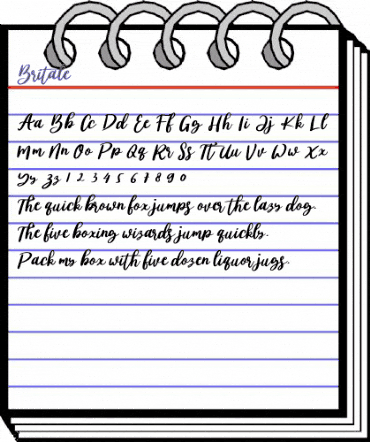 Britate
Aa Bb Cc Dd Ee Ff Gg Hh Ii Jj Kk Ll
Mm Nn Oo Pp Qq Rr Ss Tt Uu Vv Ww Xx
Yy Zz 1 2 3 4 5 6 7 8 9 0
The quick brown fox jumps over the lazy dog.
The five boxing wizards jump quickly.
Pack my box with five dozen liquor jugs.